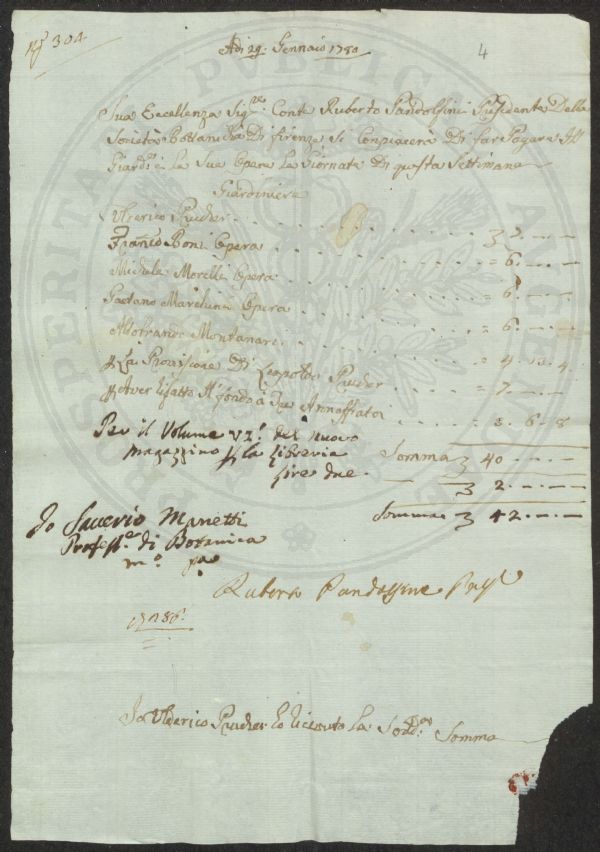 Nº 304
Adì 29. Gennaio 1780
4
Sua Eccellenza Sig.re Conte Ruberto Pandolfini Presidente Della
Società Bottanicha Di firenze si Conpiacerà Di far Pagare Al
Giard.e La Sua Opera La Giornate Di questa Settimana
Giardiniere
Ulderico Prucher
Fran.co Boni Opera = 6.
Michele Morelli Opera = 6.
Gaetano Opera = 6.
Aldobrando Montanari = 6.
La Provisione Di Leopoldo Prucher = 7.
Aver Rifatto Il fondo a Due Annaffiatoi 6. 8
Per il Volume VI.º del nuovo
magazzino p la Libreria
lire due
Somma 40
2.
Somma 42
Io Saverio Manetti
Profess.re di Botanica
m.º pa
Ruberto Pandolfini Pres.e
Io Ulderico Prucher ò riceuto La Sod.a Somma
PROSPERITATI PUBLICAE AUGENDAE